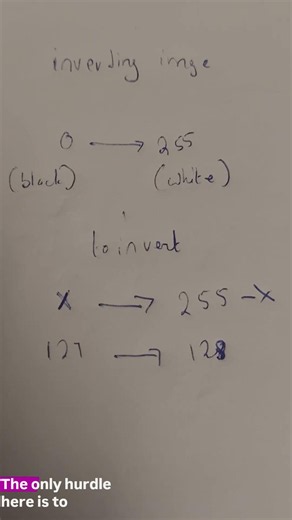 inverting image
0 → 255
(black) (white)
to invert
x → 255 - x
127 → 128
The only hurdle
here is to